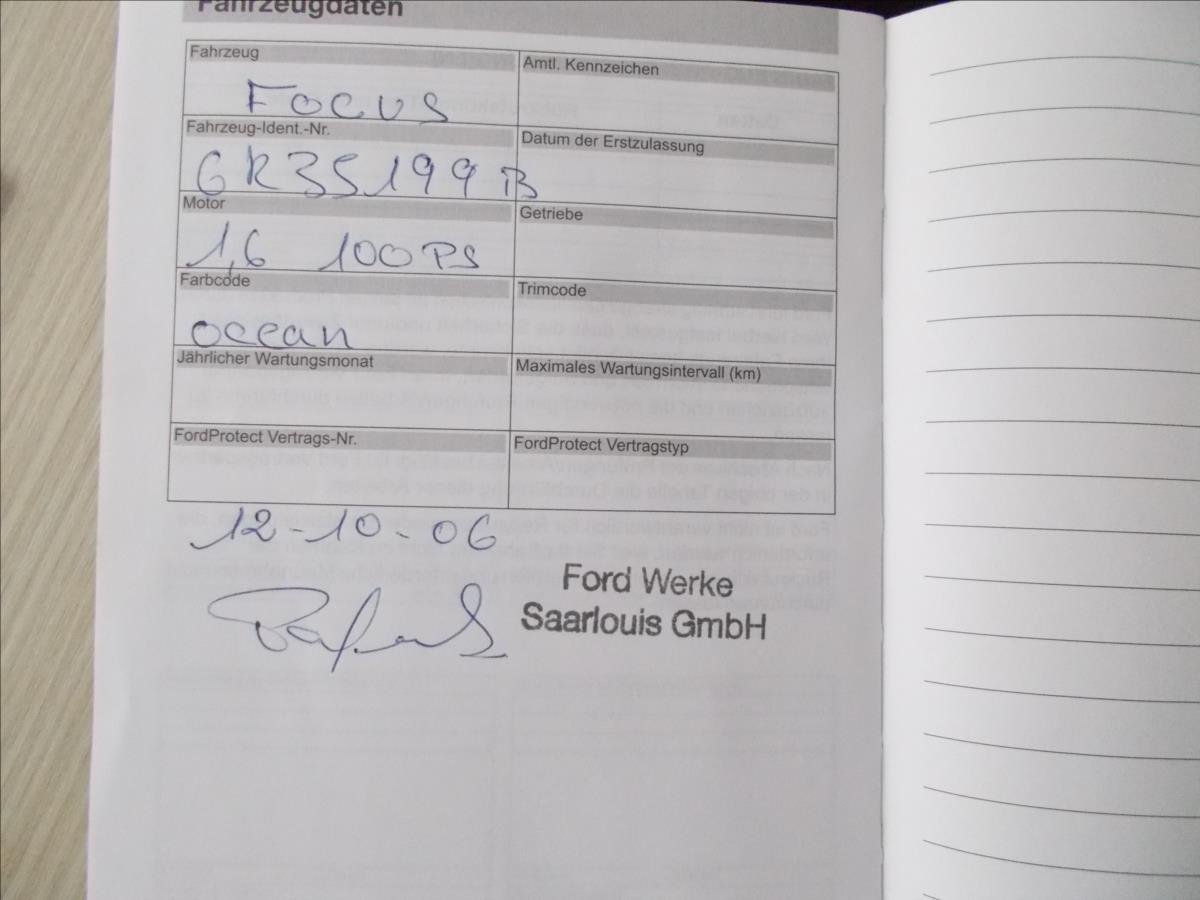 Fahrzeugdaten
Fahrzeug
Amtl. Kennzeichen
Focus
Fahrzeug-Ident.-Nr.
Datum der Erstzulassung
6R35199
Motor
Getriebe
1,6 100 PS
Farbcode
Trimcode
ocean
Jährlicher Wartungsmonat
Maximales Wartungsintervall (km)
FordProtect Vertrags-Nr.
FordProtect Vertragstyp
12-10-06
Ford Werke
Saarlouis GmbH